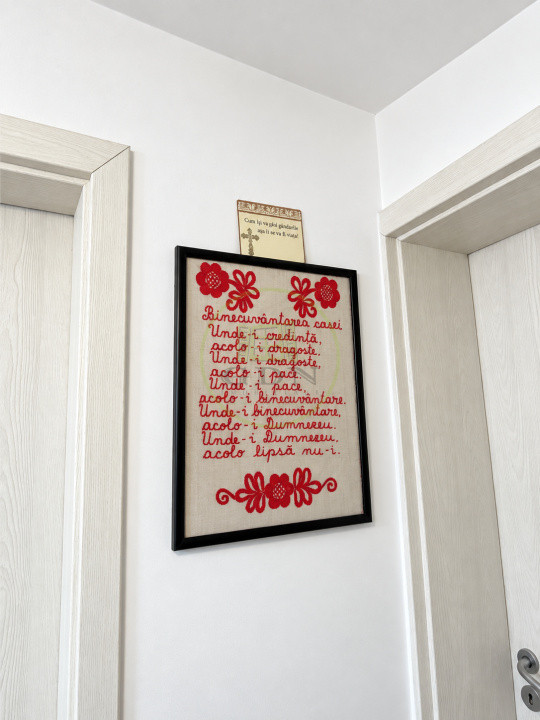 Cum îți vei găsi gândurile
așa îi se va fi viața!
Binecuvântarea casei
Unde-i credință,
acolo-i dragoste.
Unde-i dragoste,
acolo-i pace.
Unde-i pace,
acolo-i binecuvântare.
Unde-i binecuvântare,
acolo-i Dumnezeu.
Unde-i Dumnezeu,
acolo lipsă nu-i.